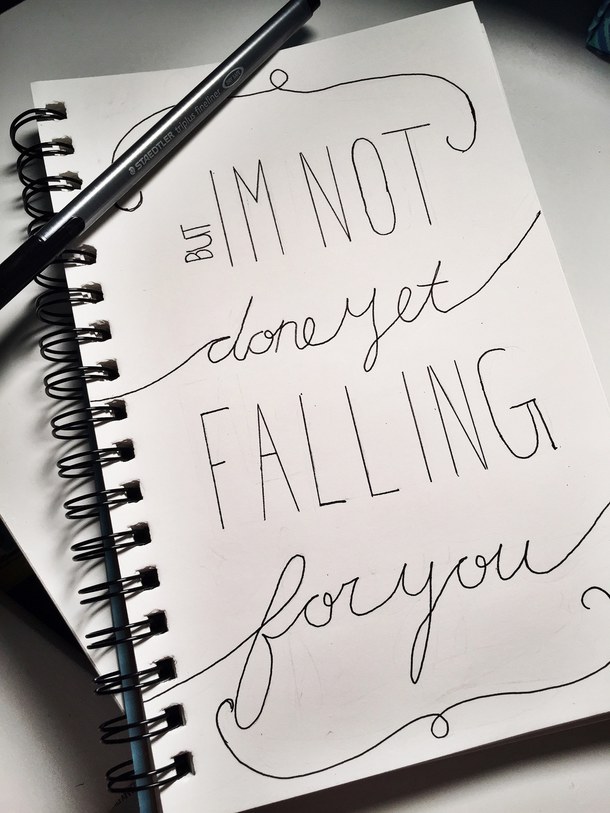 STAEDTLER triplus fineliner
BUT IM NOT
done yet
FALLING
for you